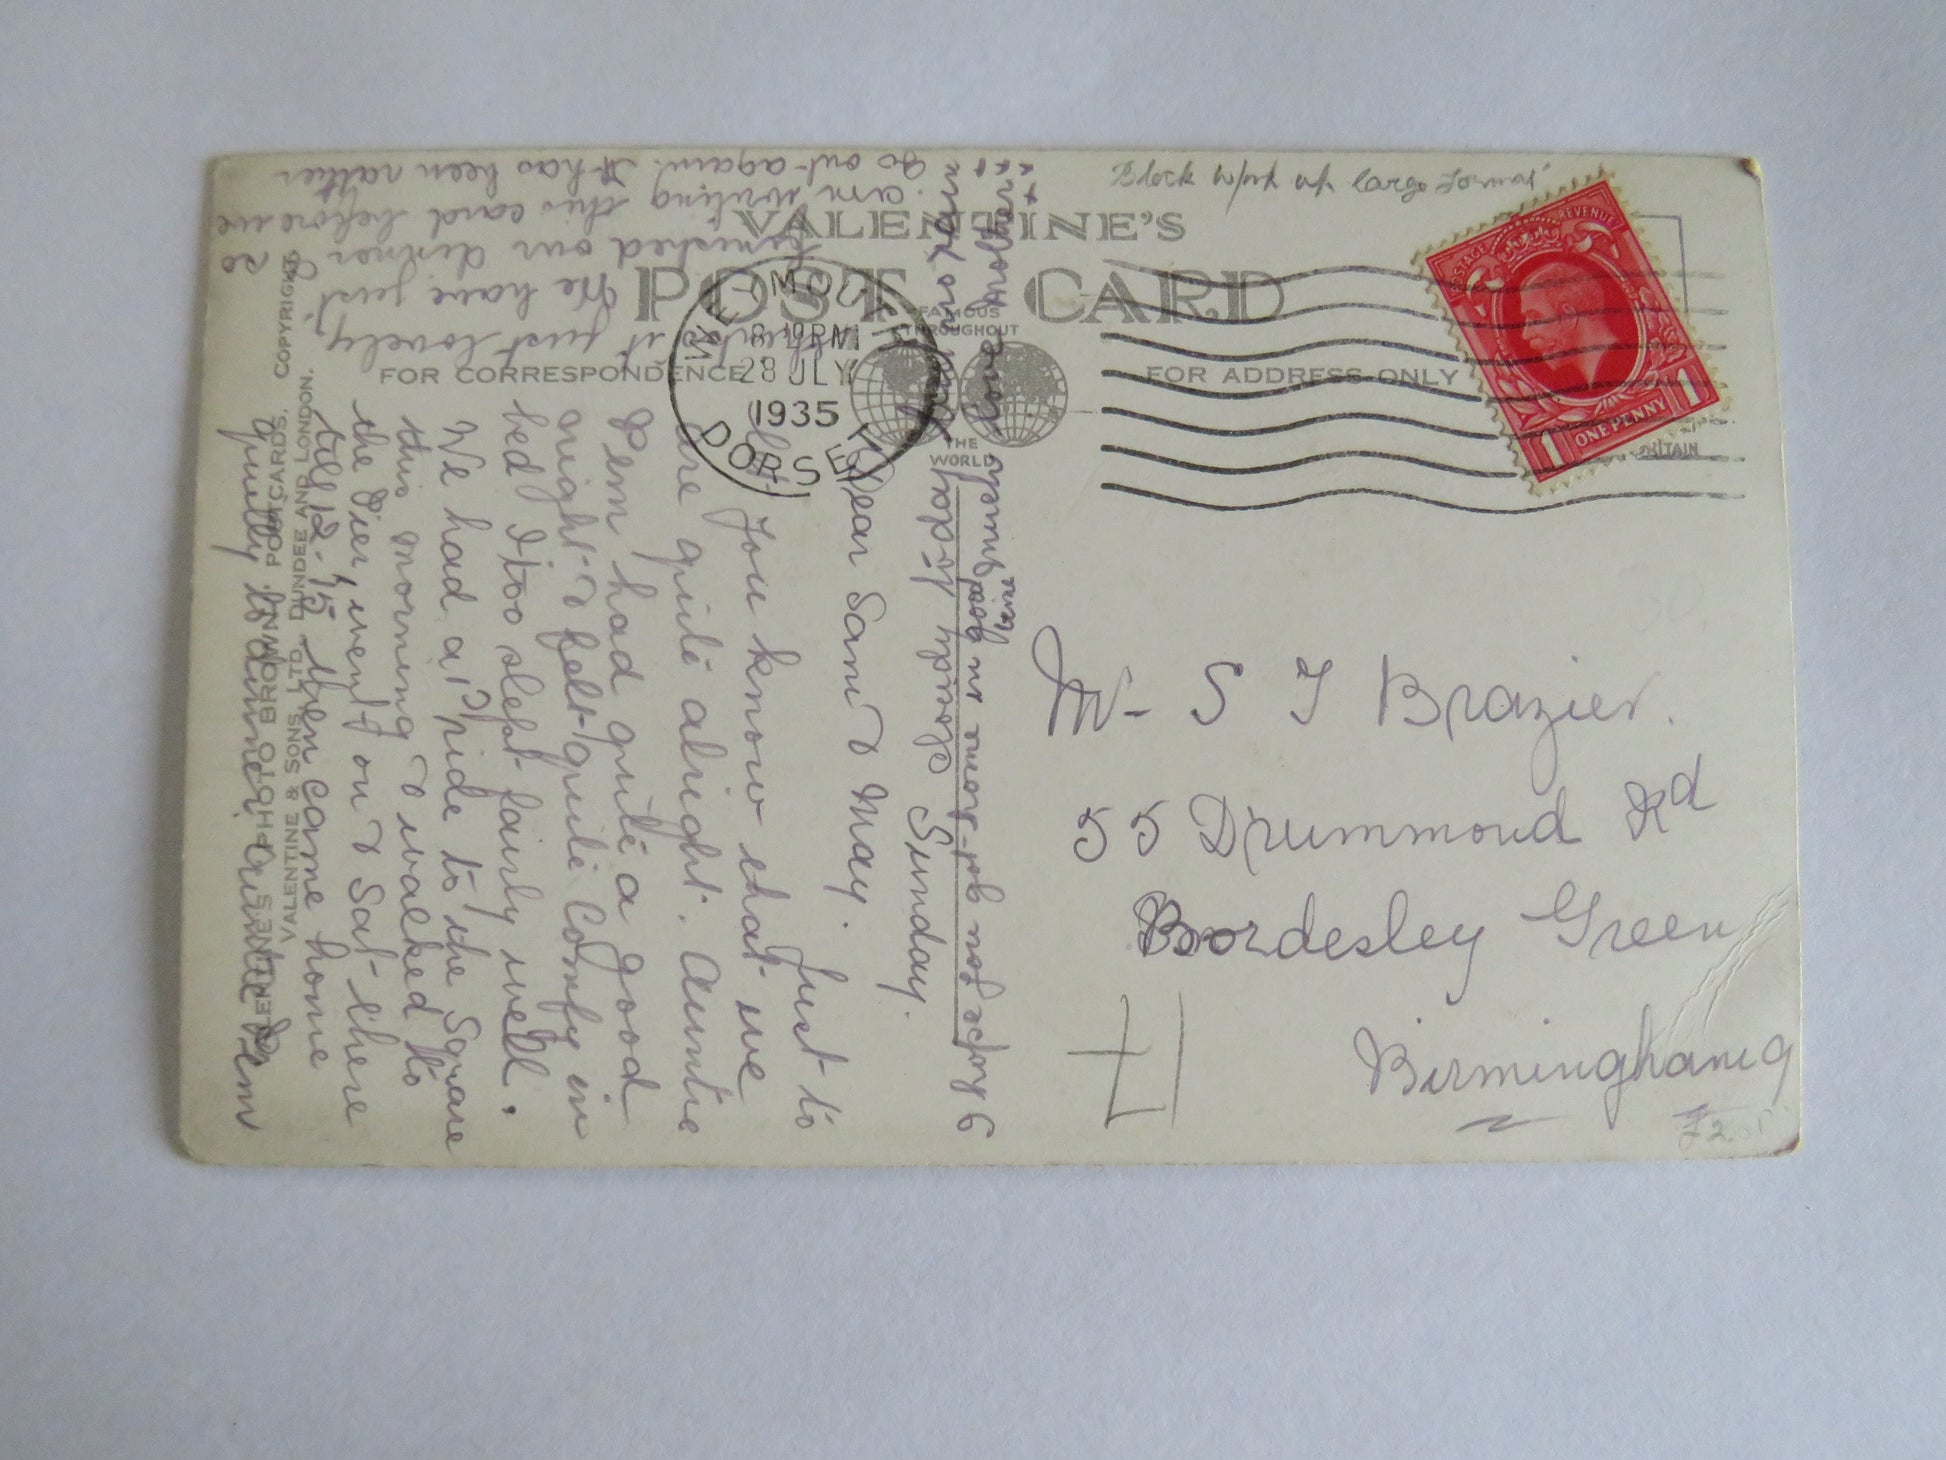 VALENTINE'S
POST CARD
FAMOUS
THROUGHOUT
THE
WORLD
FOR CORRESPONDENCE
FOR ADDRESS ONLY
Block
large format
WEYMOUTH
8 PM
28 JLY
1935
DORSET
POSTAGE REVENUE
1 ONE PENNY 1
Mr S T Brazier.
55 Drummond Rd
Bordesley Green
Birmingham 9
£2.
Sunday.
Dear Sam & May.
Just to
let you know that we
are quite alright. Auntie
& Pem had quite a good
night & felt quite Comfy in
bed I too slept fairly well.
We had a ride to the Square
this morning & walked to
the Pier, went on & Sat there
till 12.45 then came home
to dinner. Auntie & Pem
just lovely.
We have just
finished our dinner so
am writing this card before we
go out again. It has been rather
cloudy today
Hope you got home in good
time
love Mother
VALENTINE'S PHOTO BROWN POSTCARDS, COPYRIGHT.
VALENTINE & SONS, LTD. DUNDEE AND LONDON.